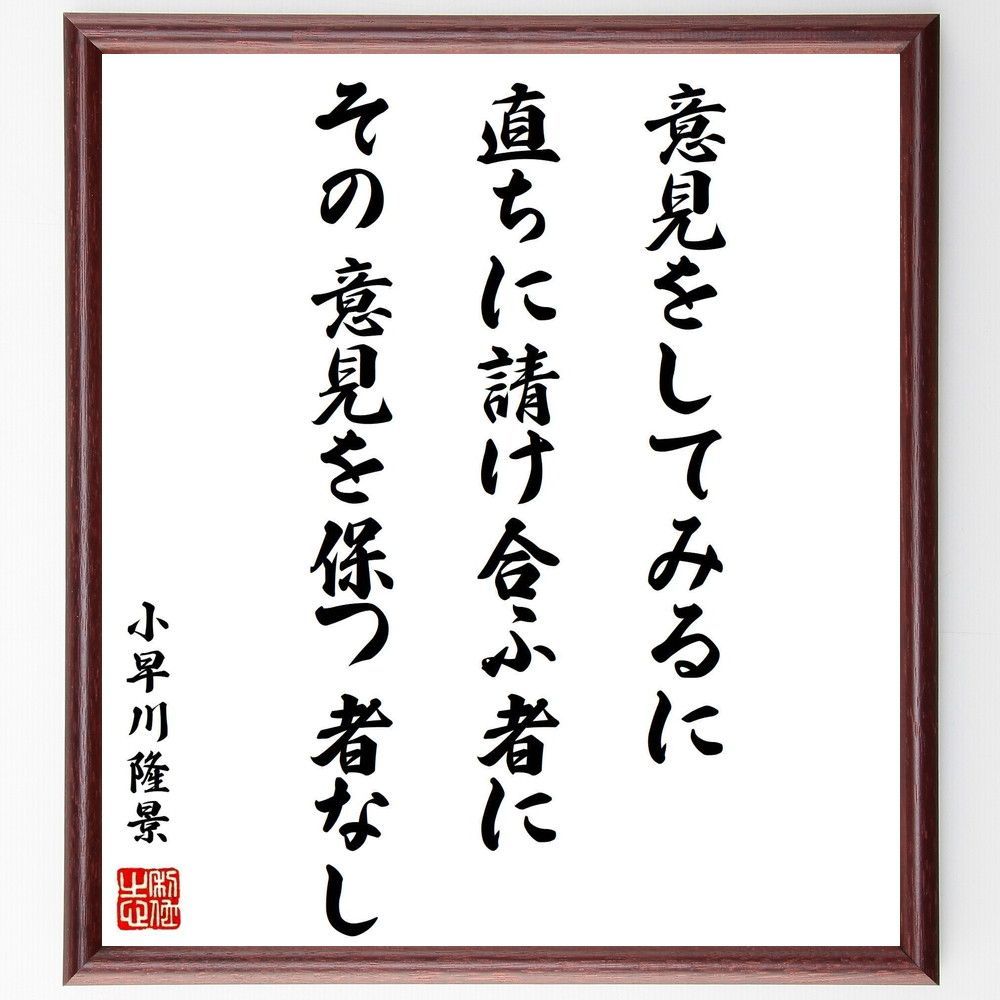 意見をしてみるに
直ちに請け合ふ者に
その意見を保つ者なし
小早川隆景